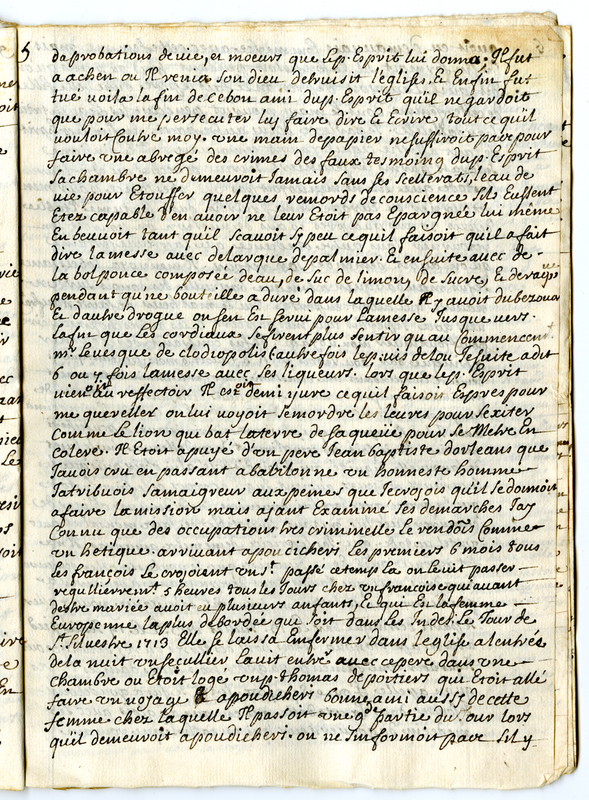 5
daprobations de vie, et moeurs que le p. Esprit lui donna; Il fut
a achen ou Il renia son dieu detruisit leglise. Et Enfin fut
tué voila la fin de ce bon ami du p. Esprit qu'il ne gardoit
que pour me persecuter luy faire dire Et Ecrire tout ce quil
vouloit Contre moy. une main de papier ne suffiroit pas pour
faire une abregé des crimes des faux tesmoins du p. Esprit
sa chambre ne demeuroit Jamais sans ses scellerats, l'eau de
vie pour Etouffer quelques remords de conscience sils Eussent
Etez capable d'en avoir ne leur Etoit pas Epargnée lui même
En beuvoit tant quil scavoit sy peu ce quil faisoit quil a fait
dire la messe avec de larque de palmier. Et ensuite avec de
la bolponce composée deau, de suc de limon, de sucre, Et de raque
pendant qu'ne bouteille a duré dans laquelle Il y avoit du bezouar
Et dautre drogue on sen Est servi pour la messe Jusque vers
la fin que les cordiaux se firent plus sentir qu au Commencemt
mr. leveque de clodiopolis (autrefois le p. visdelou Jesuite a dit
6 ou 7 fois la messe avec ses liqueurs. lors que le p. Esprit
vienoit au reffectoir Il estoit demi yure ce quil faisoit Espres pour
me quereller on lui voyoit se mordre les levres pour sexiter
Comme le lion que bat la terre de sa queüe pour se Metre En
colere. Il Etoit apuyé d'un pere Jean baptiste dorleans que
Javois cru en passant a babilonne un honneste homme
Jatribuois sa maigreur aux peines que Je crojois quil se donnoit
a faire la mission mais ajant Examiné ses demarches Jay
Connu que des occupations tres criminelle le rendois Comme
un hetique. arrivant a poudicheri les premiers 6 mois tous
les françois le crojoient un st. passé ce temp la on le vit passer
regullierremt. 5 heures tous les Jours chez un françoise qui avant
destre mariée avoit eu plusieurs anfants, Et qui Est la femme
Europenne la plus debordée qui soit dans les Indes. Le Jour de
St. silvestre 1713 Elle se laissa Enfermer dans leglise a lentrée
de la nuit un secullier la vit entrer avec ce pere dans une
chambre ou Etoit logé un p. thomas de poitiers qui Etoit allé
faire un voyage a poudichers bonne ami aussy de cette
femme chez laquelle Il passoit une gde partie du Jour lors
quil demeuroit a poudichers. on ne sinformoit pas sil y